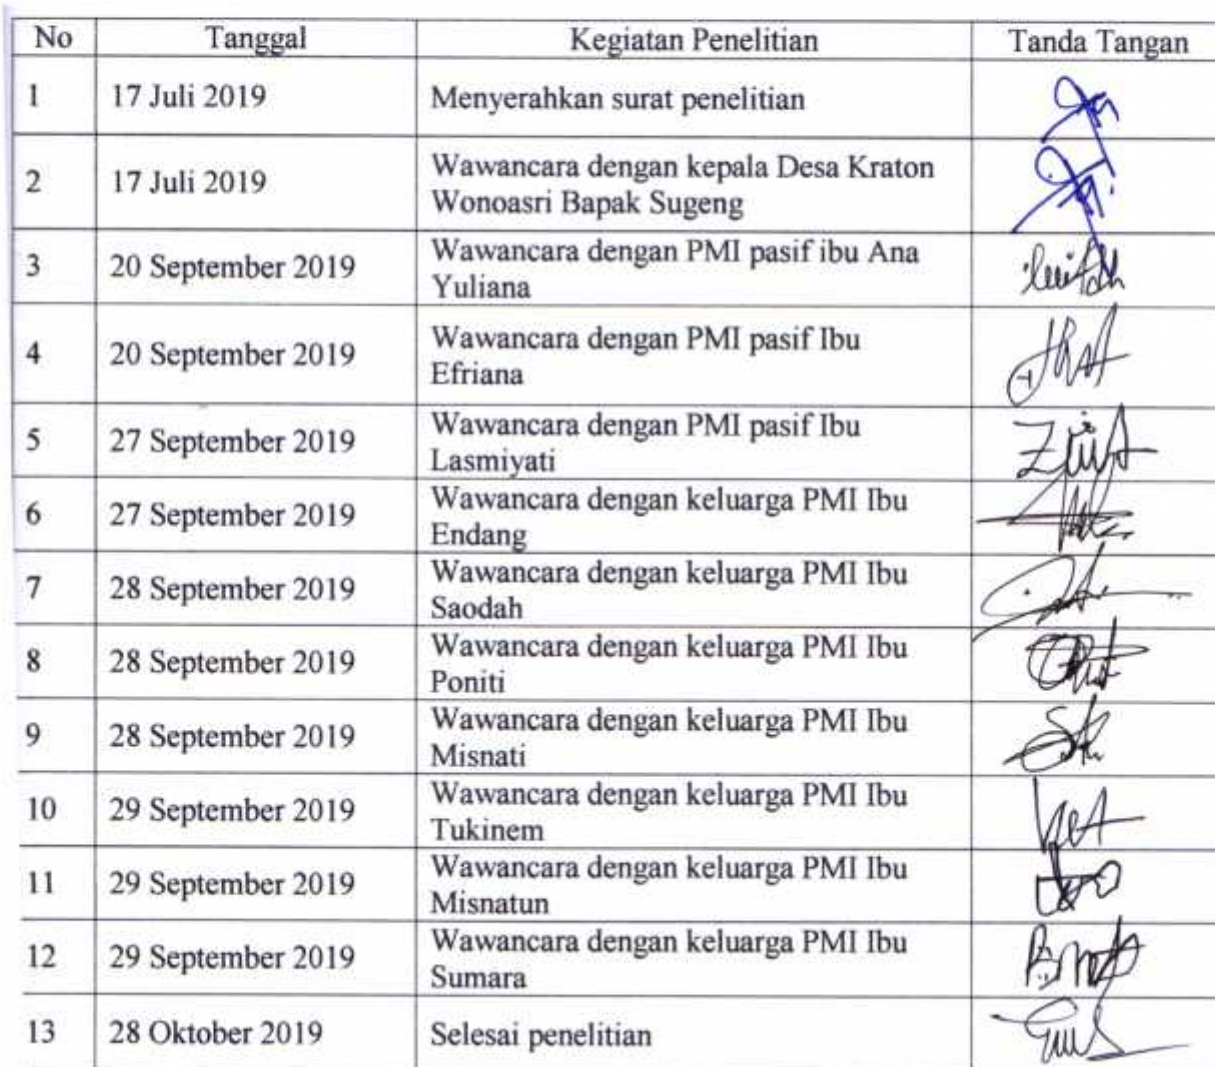 No Tanggal Kegiatan Penelitian Tanda Tangan
1 17 Juli 2019 Menyerahkan surat penelitian
2 17 Juli 2019 Wawancara dengan kepala Desa Kraton
Wonoasri Bapak Sugeng
3 20 September 2019 Wawancara dengan PMI pasif ibu Ana
Yuliana
4 20 September 2019 Wawancara dengan PMI pasif Ibu
Efriana
5 27 September 2019 Wawancara dengan PMI pasif Ibu
Lasmiyati
6 27 September 2019 Wawancara dengan keluarga PMI Ibu
Endang
7 28 September 2019 Wawancara dengan keluarga PMI Ibu
Saodah
8 28 September 2019 Wawancara dengan keluarga PMI Ibu
Poniti
9 28 September 2019 Wawancara dengan keluarga PMI Ibu
Misnati
10 29 September 2019 Wawancara dengan keluarga PMI Ibu
Tukinem
11 29 September 2019 Wawancara dengan keluarga PMI Ibu
Misnatun
12 29 September 2019 Wawancara dengan keluarga PMI Ibu
Sumara
13 28 Oktober 2019 Selesai penelitian